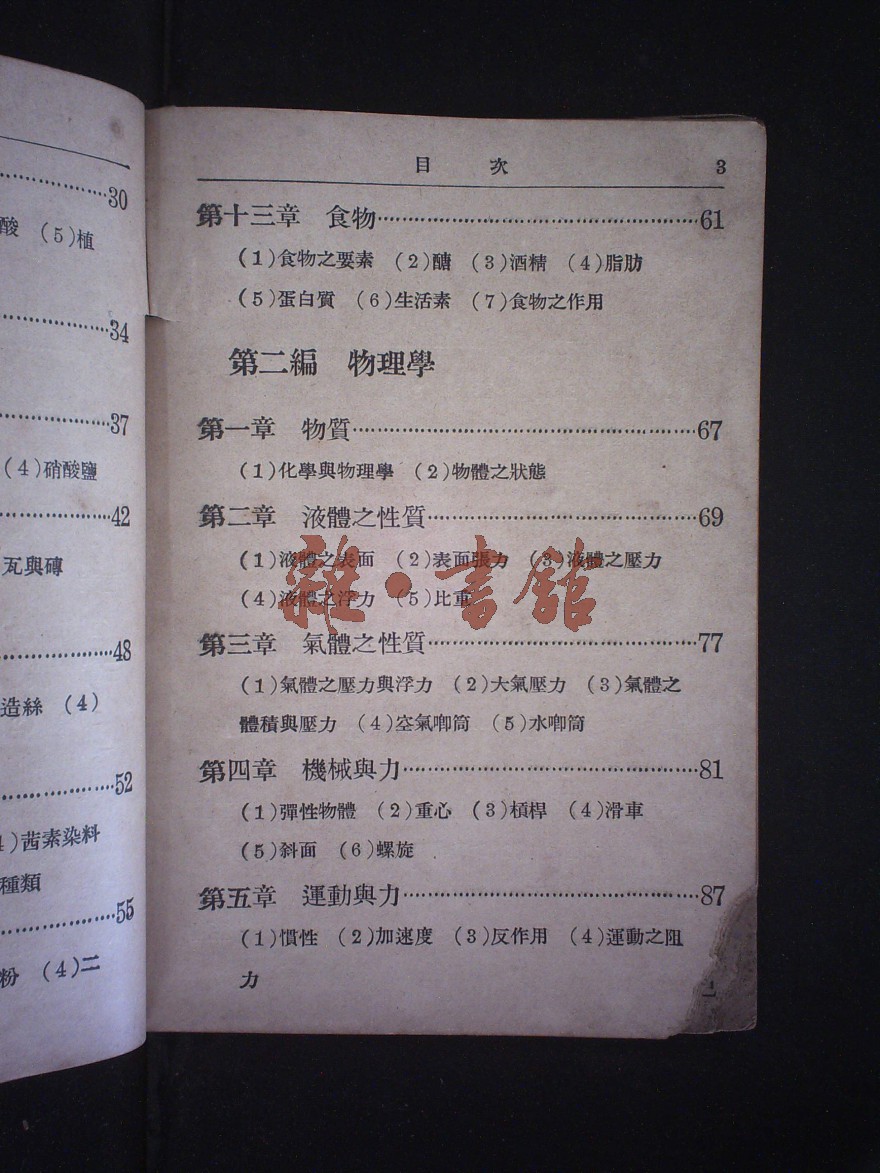 30
酸 (5)植
34
37
(4)硝酸鹽
42
瓦與磚
48
造絲 (4)
52
)茜素染料
種類
55
粉 (4)二
目 次 3
第十三章 食物 61
(1)食物之要素 (2)醣 (3)酒精 (4)脂肪
(5)蛋白質 (6)生活素 (7)食物之作用
第二編 物理學
第一章 物質 67
(1)化學與物理學 (2)物體之狀態
第二章 液體之性質 69
(1)液體之表面 (2)表面張力 (3)液體之壓力
(4)液體之浮力 (5)比重
第三章 氣體之性質 77
(1)氣體之壓力與浮力 (2)大氣壓力 (3)氣體之
體積與壓力 (4)空氣唧筒 (5)水唧筒
第四章 機械與力 81
(1)彈性物體 (2)重心 (3)槓桿 (4)滑車
(5)斜面 (6)螺旋
第五章 運動與力 87
(1)慣性 (2)加速度 (3)反作用 (4)運動之阻
力
雜·書館